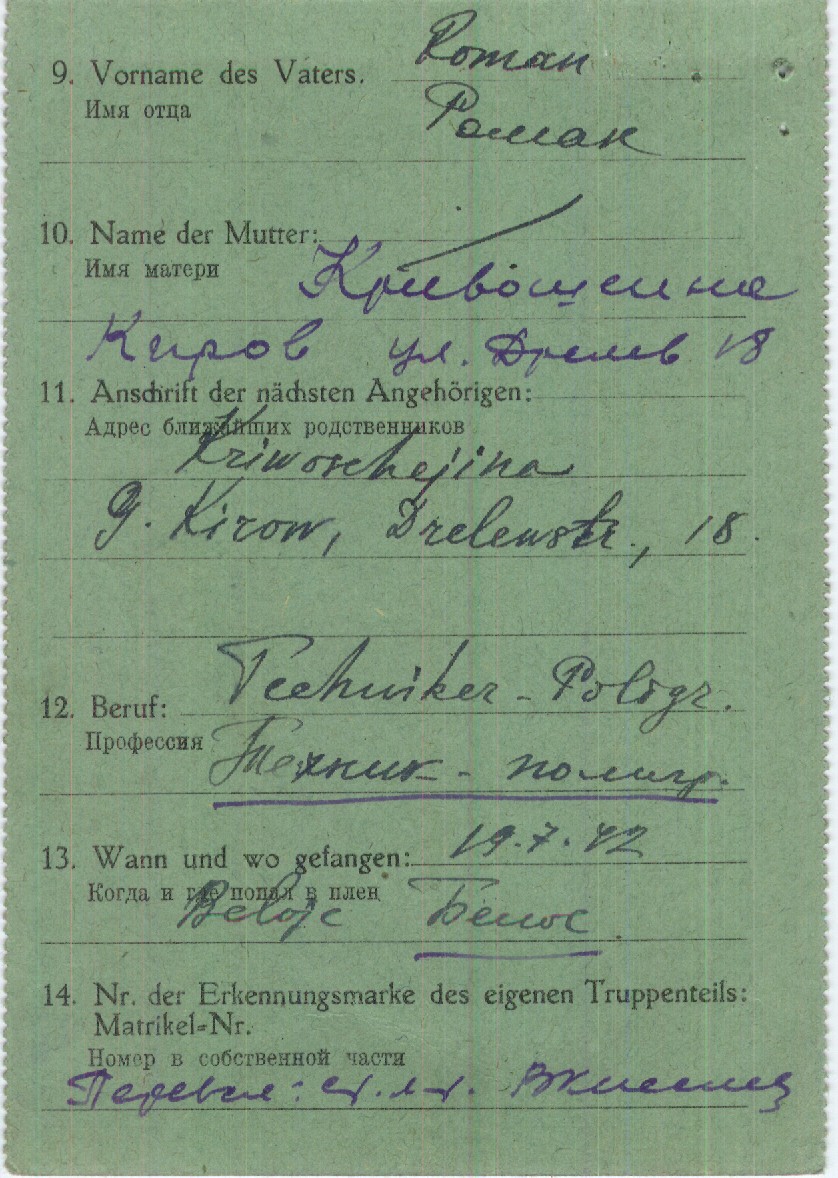 9. Vorname des Vaters. Roman
Имя отца Роман
10. Name der Mutter:
Имя матери Кривошеина
Киров ул. Дрелев 18
11. Anschrift der nächsten Angehörigen:
Адрес ближайших родственников
Kriwoschejina
G. Kirow, Drelewstr., 18.
12. Beruf: Techniker - Poligr.
Профессия Техник - полигр.
13. Wann und wo gefangen: 19.7.42
Когда и где попал в плен
Beloje Белое
14. Nr. der Erkennungsmarke des eigenen Truppenteils:
Matrikel-Nr.
Номер в собственной части
Перевел: ст. л-т.